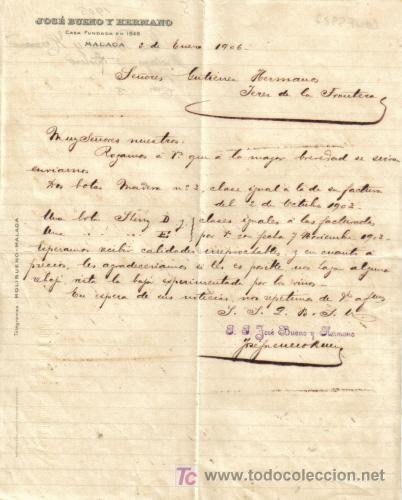 JOSÉ BUENO Y HERMANO
CASA FUNDADA EN 1848
MALAGA 3 de Enero 1906.
Señores Gutiérrez Hermanos
Jerez de la Frontera
Muy Señores nuestros:
Rogamos á Vs. que á la mayor brevedad se sirvan
enviarnos
Dos botas Madera nº 2, clase igual á la de su factura
del 2 de Octubre 1903.
Una bota Sherry D y clases iguales á las facturadas
Una " " E por Vs en fecha 7 Noviembre 1903.
Esperamos recibir calidades irreprochables, y en cuanto á
precios, les agradeceríamos si les es posible nos hagan alguna
rebaja vista la baja experimentada por los vinos.
En espera de sus noticias, nos repetimos de Vs affmos
S. S. Q. B. S. M.
José Bueno y Hermano
Telegramas: MOLIBUENO-MALAGA
TC todocoleccion
www.todocoleccion.net